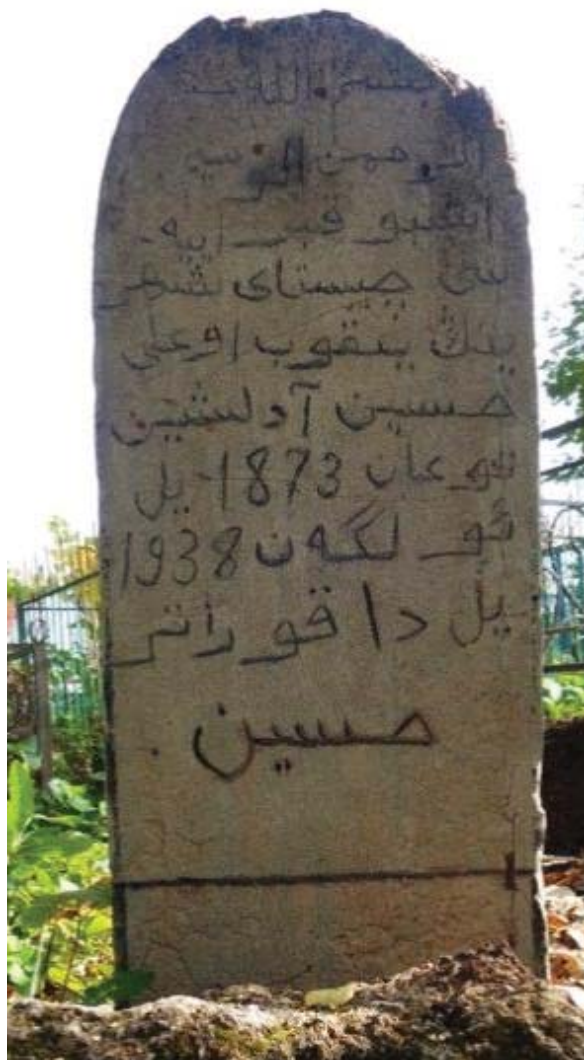 بسم الله
الرحمن الر
اشبو قبر اييه
سى چيستاى شهر
ينڭ يعقوب اوغلى
حسين آدلىشين
تو عان 1873 يل
ئو لگەن 1938
يل دا قو راتر
حسين .